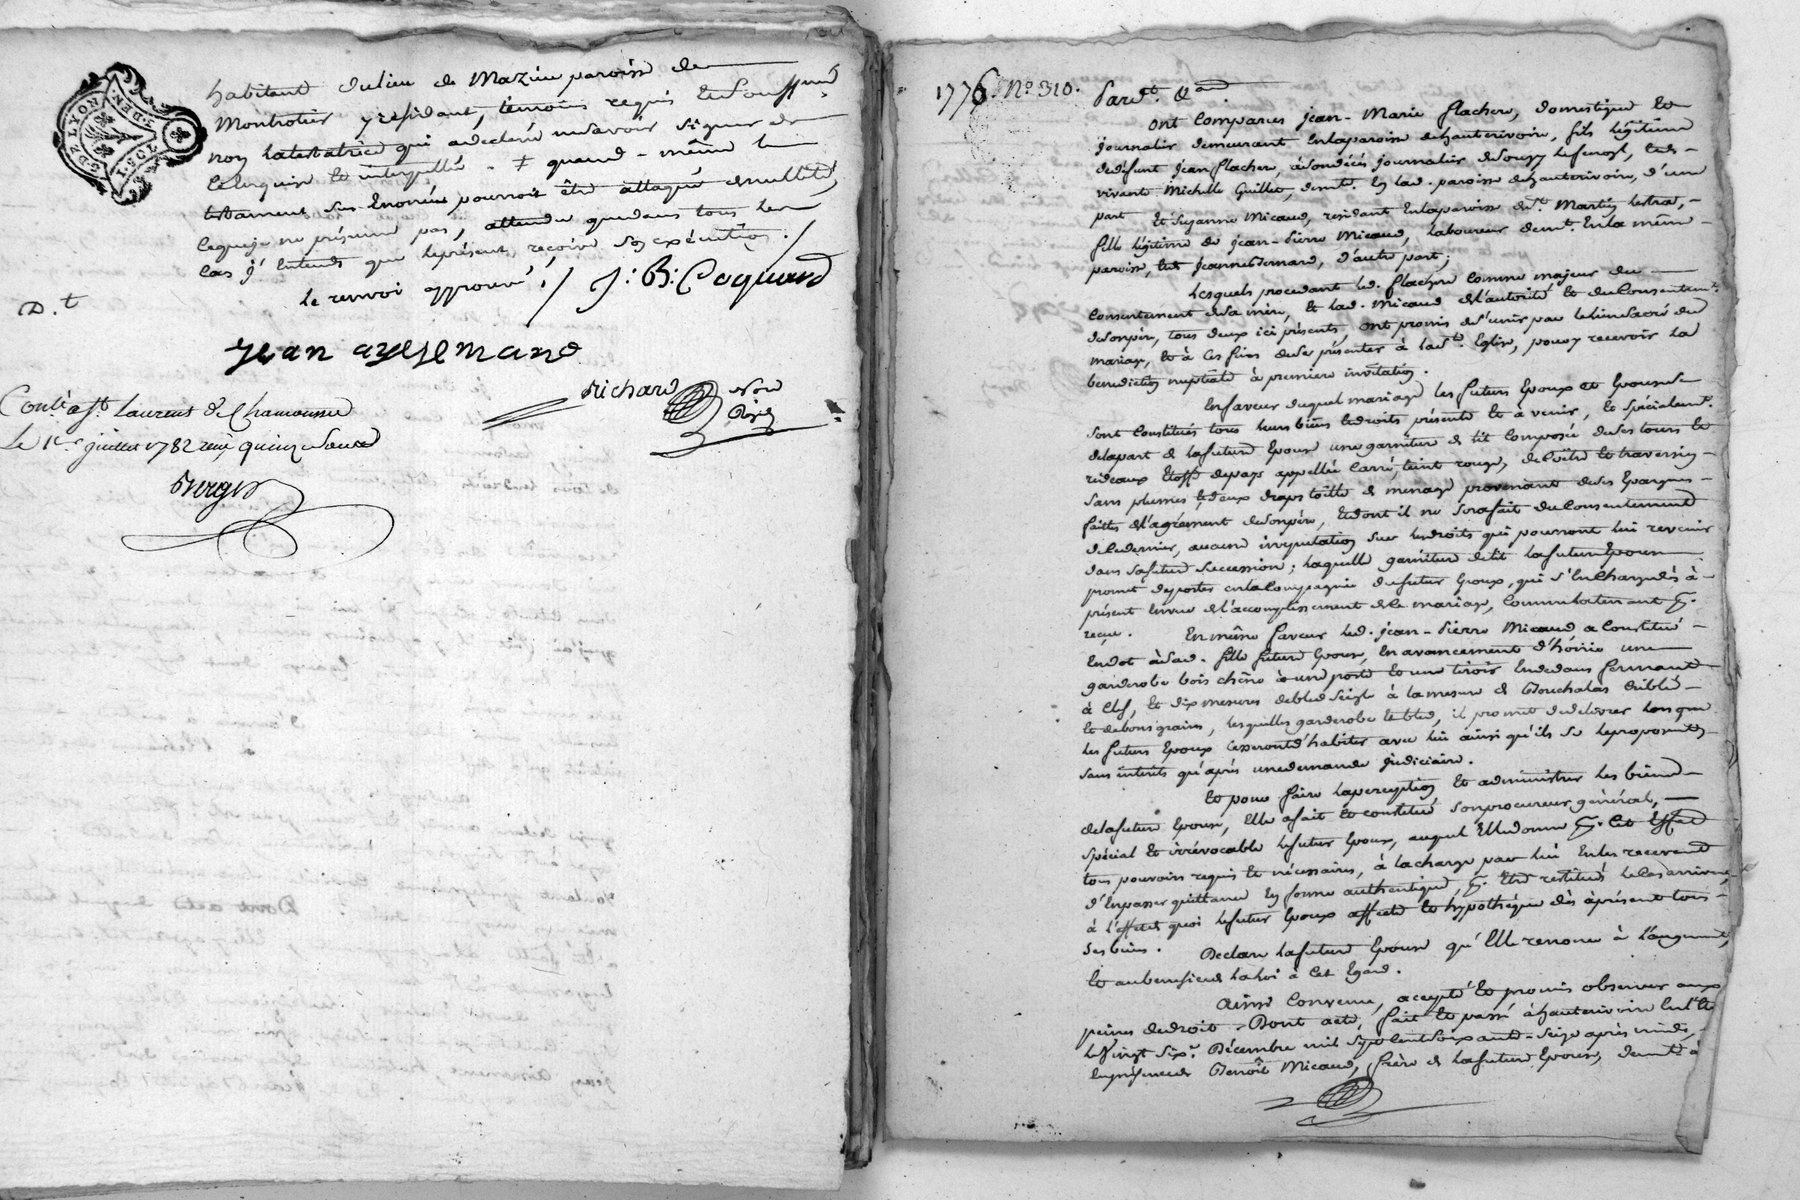 habitant du lieu de Mazieu paroisse de
Montrotier y résidant, témoins requis et soussignés
non la testatrice qui a declaré ne savoir signer de
ce enquise et interpellée. ‡ quand-même le
testament sus énoncée pourroit être attaqué de nullité,
ce que je ne présume pas, attendu que dans tous les
cas j'entends que le présent reçoive son exécution./
le renvoi approuvé ./ J: B: Coquard
D.t
Jean ayssemane
Richard Nore
Roy
Conté a St Laurent de Chamousset
Le 1er juillet 1782 reçu quinze sous
Berger
G.D. LYON
2. DEN.
1776 No. 310.
Pard.t &a
Ont Comparus jean-Marie flachere, domestique et
journalier demeurant en la paroisse de hauterivoire, fils légitime
de défunt jean flachere, à son décès journalier de Souzy, et de
vivante Michelle Guillet, demte. en lad. paroisse de hauterivoire, d'une
part Et Suzanne Micaud, résidant en la paroisse de St. Martin lestra,-
fille légitime de jean-Pierre Micaud, laboureur demt. en la même-
paroisse, et de jeanne Bernard, d'autre part;
Lesquels procedant led. flachere comme majeur du
Consentement de sa mère, et lad. Micaud de l'autorité et du Consentemt.
de son père, tous deux ici présents, ont promis de s'unir par le lien sacré du
mariage, et à ces fins de se présenter à la Ste. Eglise, pour y recevoir la
bénédiction nuptiale à premiere invitation.
En faveur duquel mariage les futurs Epoux et Epouse se
sont Constitués tous leurs biens et droits présents et à venir, et spécialemt.
de la part de la future Epouse une garniture de lit composée de ses tours et
rideaux étoffe de pays appellée Carré, teint rouge, de Coëtre et traversin-
sans plumes, et deux draps toille de menage provenant de ses Epargnes-
faittes de l'agrément de son père, et dont il ne sera fait du Consentement
de ce dernier, aucune imputation sur les droits qui pourront lui revenir
dans sa future Succession; laquelle garniture de lit la future Epouse
promet de porter en la Compagnie du futur Epoux, qui s'en charge dès à-
présent en vue de l'accomplissement de ce mariage, comme la tenant pr.
reçue. En même faveur led. jean-Pierre Micaud a Constitué-
en dot à sad. fille future Epouse, en avancement d'hoirie une
garderobe bois chêne à une porte et un tiroir en dedans fermant
à clef, et dix mesures de bled seigle à la mesure de Bouchalas criblé-
et de bons grains, lesquelles garderobe et bled, il promet de délivrer lorsque
les futurs Epoux cesseront d'habiter avec lui ainsi qu'ils se le proposent-
sans intérêts qu'après une demande judiciaire.
Et pour faire la perception et administrer les biens-
de la future Epouse, Elle a fait et constitué son procureur général,-
spécial et irrévocable le futur Epoux, auquel Elle donne pr. cet Effet
tous pouvoirs requis et nécessaires, à la charge par lui en les recevant
d'en passer quittance en forme authentique, pr. Etre restitués le cas arrivant,
à l'effet de quoi le futur Epoux affecte et hypothéque dès à présent tous-
ses biens. Déclare la future Epouse qu'Elle renonce à l'augment,
et au bénéfice de la loi à cet Egard.
Ainsi Convenu, accepté et promis observer aux
peines de droit. Dont acte, fait et passé à hauterivoire en l'Et.
le Vingt Six.e Décembre mil Sept cent Soixante-Seize après midi,-
en présence de Benoît Micaud, frère de la future Epouse, demt. à